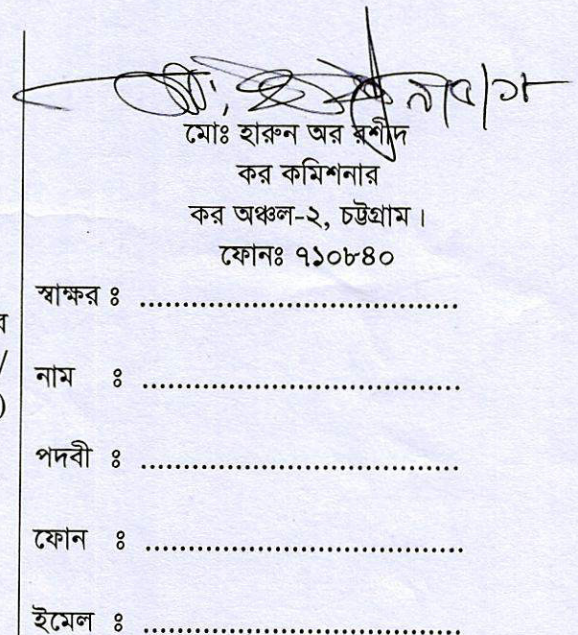 মোঃ হারুন অর রশীদ
কর কমিশনার
কর অঞ্চল-২, চট্টগ্রাম।
ফোনঃ ৭১০৮৪০
স্বাক্ষর ঃ ........................................
নাম ঃ ........................................
পদবী ঃ ........................................
ফোন ঃ ........................................
ইমেল ঃ ........................................